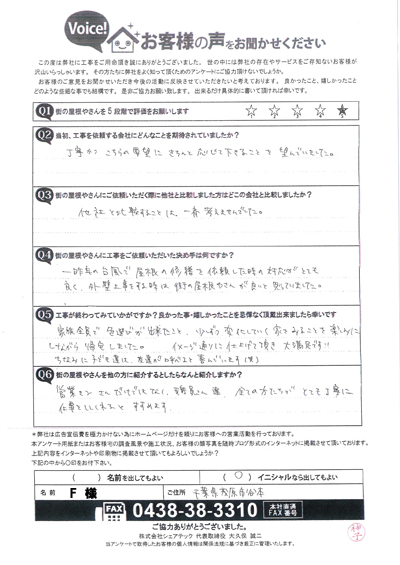 Voice! お客様の声をお聞かせください
この度は弊社に工事をご用命頂き誠にありがとうございました。世の中には弊社の存在やサービスをご存知ないお客様が
沢山いらっしゃいます。その方たちに弊社をよく知って頂くためのアンケートにご協力頂けないでしょうか。
お客様のご意見をお聞かせいただき今後の活動に反映させていただきたいと考えております。良かったこと、嬉しかったこと
どのような些細な事でも結構です。是非ご協力お願い致します。出来るだけ具体的に書いて頂ければ幸いです。
Q1 街の屋根やさんを5段階で評価をお願いします ☆ ☆ ☆ ☆ ★
Q2 当初、工事を依頼する会社にどんなことを期待されていましたか?
丁寧かつ こちらの要望に きちんと応じて下さることを 望んでいました。
Q3 街の屋根やさんにご依頼いただく際に他社と比較しました方はどこの会社と比較しましたか?
他社と比較することは、一番考えませんでした。
Q4 街の屋根やさんに工事をご依頼いただいた決め手は何ですか?
一昨年の台風で屋根の修理を依頼した時の対応がとても
良く、外壁工事をする時は 街の屋根やさんが良いと 思っていました。
Q5 工事が終わってみていかがですか?良かった事・嬉しかったことを忌憚なく頂戴出来ましたら幸いです
家族全員で 色選びが出来たこと、少しずつ変化していく家をみることを 楽しみに
しながら 帰宅しました。 イメージ通りに仕上げて頂き 大満足です!!
ちなみに 子ども達は、友達が
Q6 街の屋根やさんを他の方に紹介するとしたらなんと紹介しますか?
営業マンさんだけでなく、職人さん達、全ての方たちが とても丁寧に
仕事をしてくれると すすめます。
*弊社は広告宣伝費を極力かけない為にホームページだけを頼りにお客様への営業活動を行っております。
本アンケート用紙またはお客様宅の調査風景や施工状況、お客様の顔写真を随時ブログ形式のインターネットに掲載させて頂いております。
上記内容をインターネットや印刷物に掲載させて頂いてもよろしいでしょうか?
下記の中から○印をお付下さい。
( )名前を出してもよい (○)イニシャルなら出してもよい
名前 F 様 ご住所 千葉県茂原市
FAX 0438-38-3310 本社直通 FAX番号
ご協力ありがとうございました。
株式会社シェアテック 代表取締役 大久保 誠二
当アンケートで取得したお客様の個人情報は関係法規に基づき厳正に管理いたします。